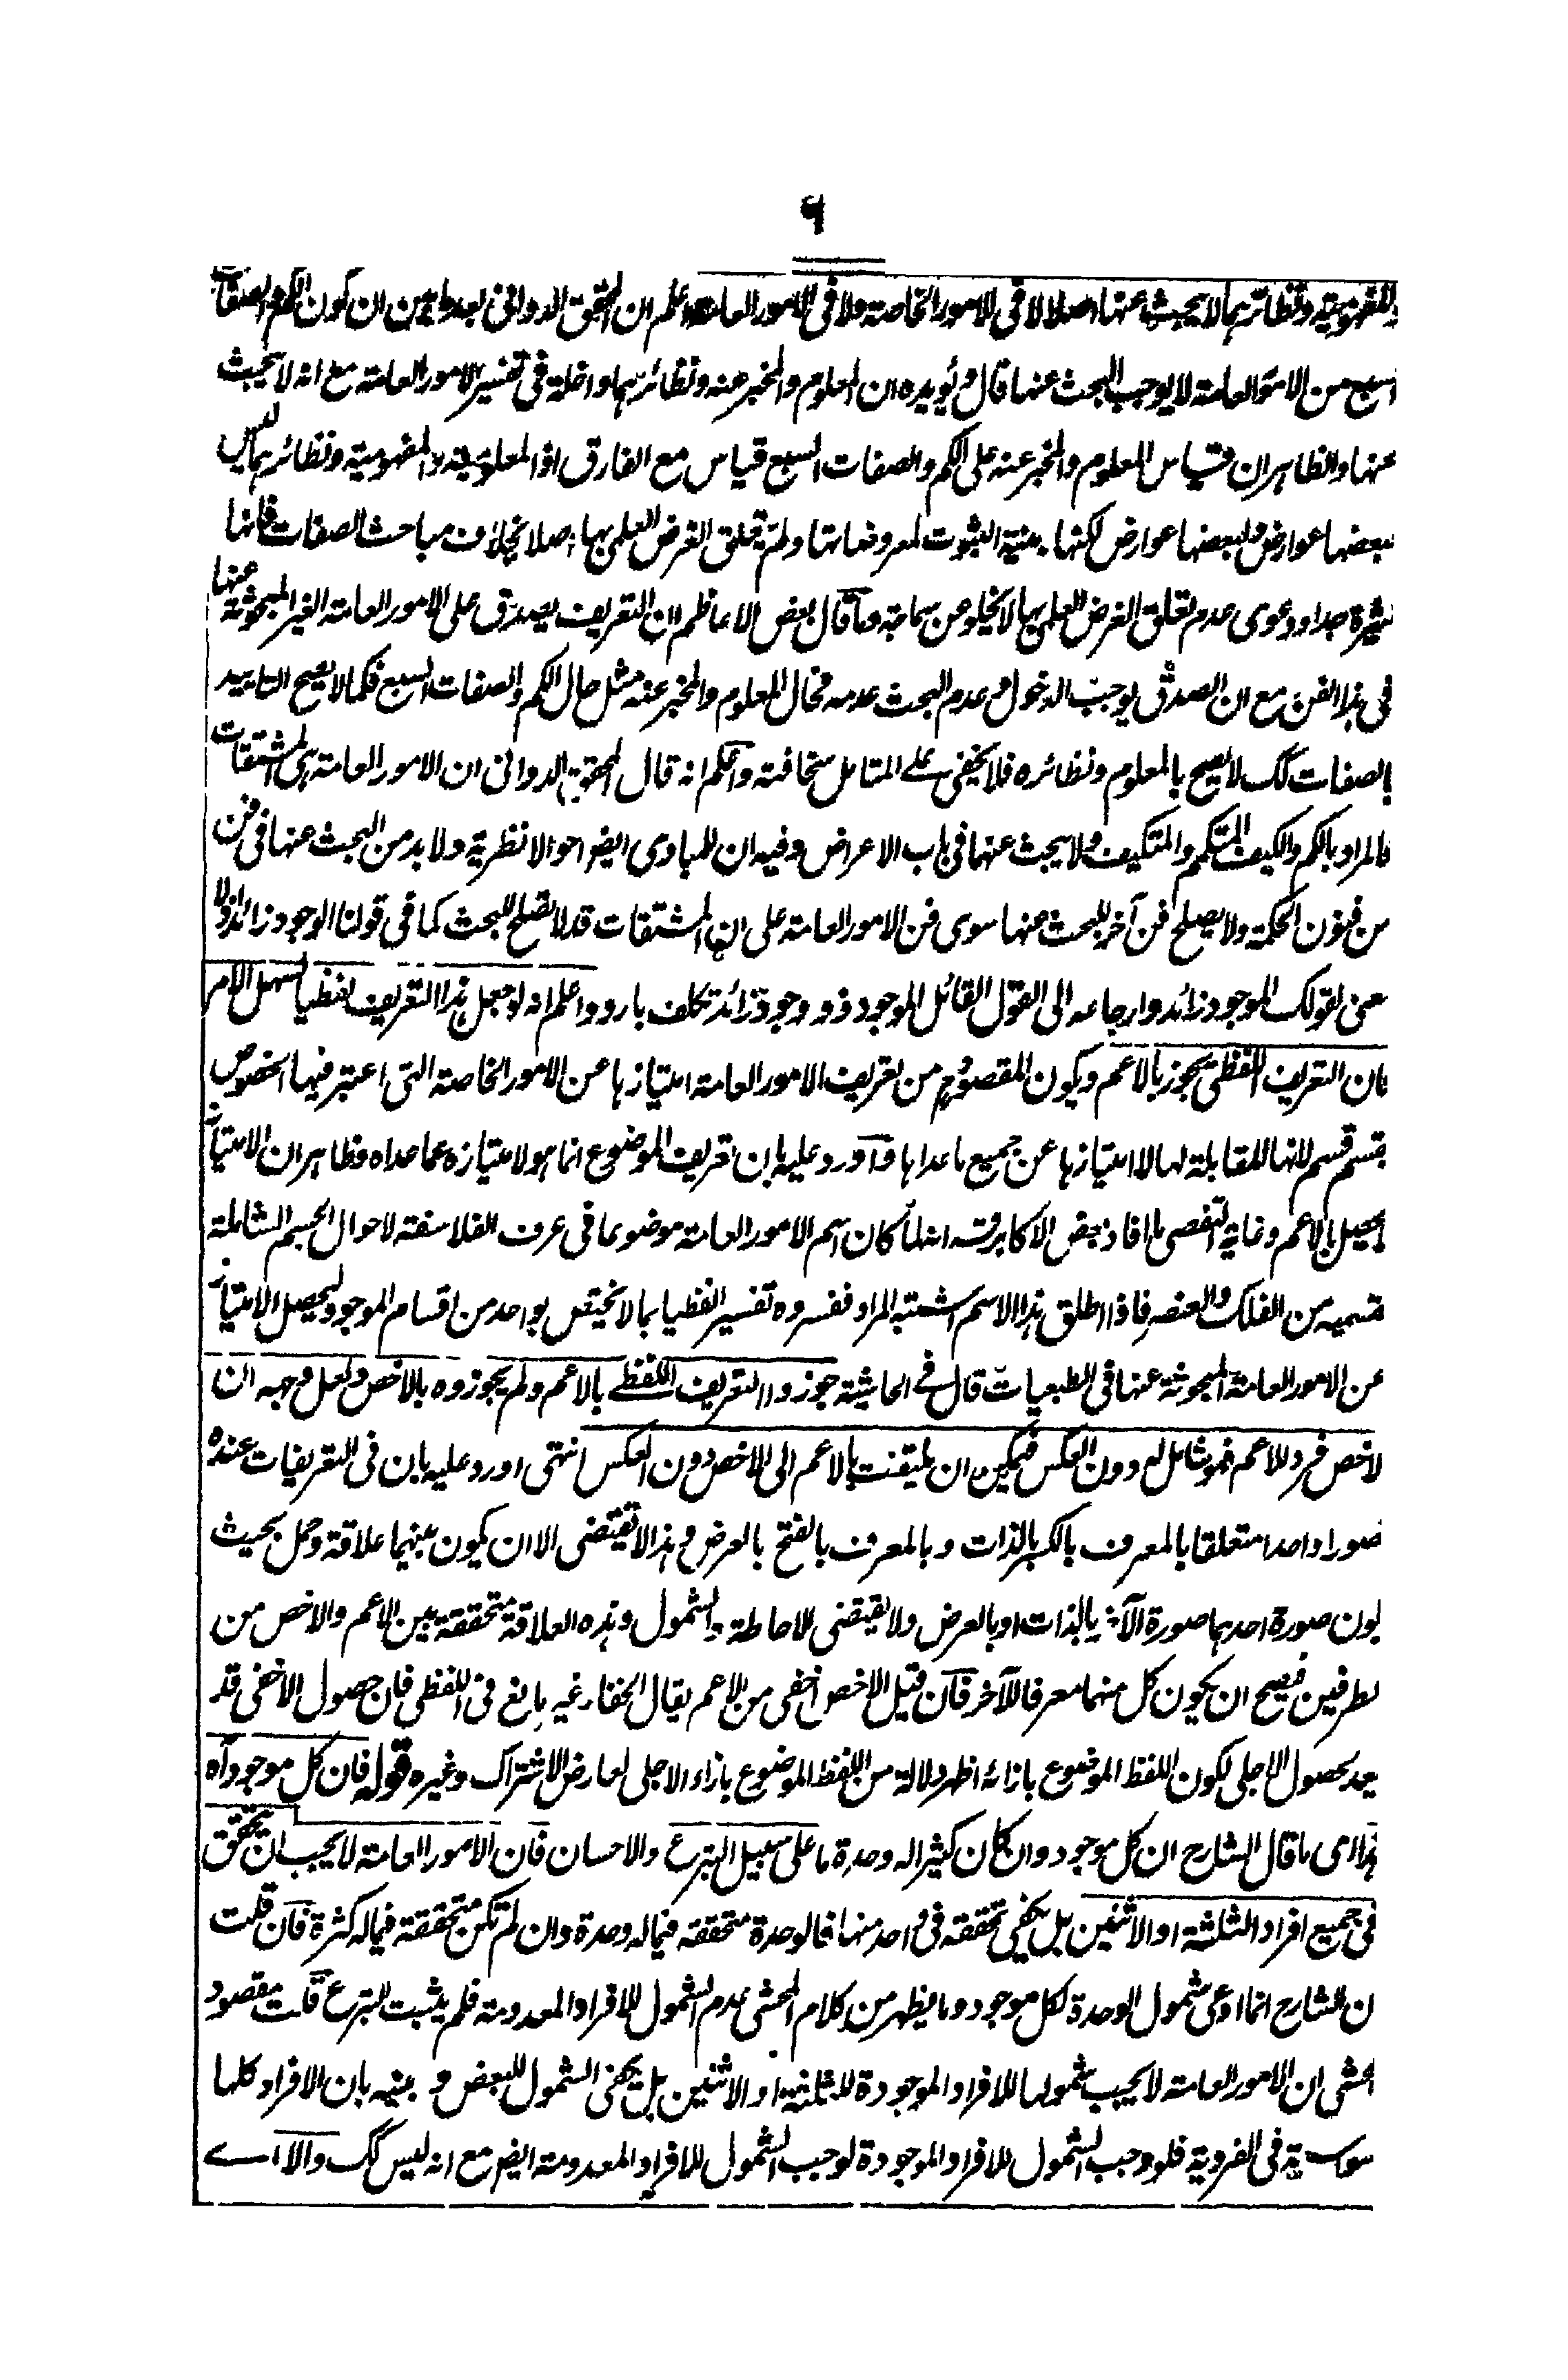 ٦
والمفهومية ونظائرهما لا يبحث عنها اصلا لا فى الامور الخاصة ولا فى الامور العامة واعلم ان المحقق الدوانى بعد ما بين ان كون الكم والصفات
السبع من الامور العامة لا يوجب البحث عنها قال ويؤيده ان المعلوم والمخبر عنه ونظائرهما داخلة فى تفسير الامور العامة مع انه لا يبحث
عنها والظاهر ان قياس المعلوم والمخبر عنه على الكم والصفات السبع قياس مع الفارق اذ المعلومية والمفهومية ونظائرهما ليس
بعضها عوارض ولبعضها عوارض لكنها بينة الثبوت لمعروضاتها ولم يتعلق الغرض العلمى بها اصلا بخلاف مباحث الصفات فانها
كثيرة جدا ودعوى عدم تعلق الغرض العلمى بها لا يخلو عن سماجة وما قال بعض الاعاظم ان التعريف يصدق على الامور العامة الغير المبحوثة عنها
فى هذا الفن مع ان الصدق يوجب الدخول وعدم البحث عدمه فحال المعلوم والمخبر عنه مثل حال الكم والصفات السبع فكما لا يصح التاييد
بالصفات كك لا يصح بالمعلوم ونظائره فلا يخفى على المتامل سخافته واعلم انه قال المحقق الدوانى ان الامور العامة هى المشتقات
فالمراد بالكم والكيف المتكمم والمتكيف ولا يبحث عنها فى باب الاعراض وفيه ان للمبادى ايضا احوالا نظرية ولا بد من البحث عنها فى فن
من فنون الحكمة ولا يصلح فن آخر للبحث عنها سوى فن الامور العامة على ان المشتقات قد لا تصلح للبحث كما فى قولنا الوجود زائد اذ لا
معنى لقولك الموجود زائد وارجاعه الى القول القائل الموجود ذو وجود زائد تكلف بارد واعلم انه لو جعل هذا التعريف لفظيا لسهل الامر
فان التعريف اللفظى يجوز بالاعم ويكون المقصود من تعريف الامور العامة امتيازها عن الامور الخاصة التى اعتبر فيها الخصوص
بقسم قسم لانها المقابلة لها لا امتيازها عن جميع ما عداها واورد عليه بان تعريف الموضوع انما هو لامتيازه عما عداه وظاهر ان الامتياز
لا يحصل بالاعم وغاية التفصى ما افاد بعض الاكابر قده انه لما كان اسم الامور العامة موضوعا فى عرف الفلاسفة لاحوال الجسم الشاملة
قسميه من الفلك والعنصر فاذا اطلق هذا الاسم اشتبه المراد ففسروه تفسيرا لفظيا بما لا يختص بواحد من اقسام الموجود ليحصل الامتياز
عن الامور العامة المبحوثة عنها فى الطبعيات قال فى الحاشية جوزوا التعريف اللفظى بالاعم ولم يجوزوه بالاخص ولعل وجهه ان
الاخص فرد للاعم فهو شامل له دون العكس فيمكن ان يلتفت بالاعم الى الاخص دون العكس انتهى اورد عليه بان فى التعريفات عنده
تصورا واحدا متعلقا بالمعرف بالكسر بالذات وبالمعرف بالفتح بالعرض وهذا لا يقتضى الا ان يكون بينهما علاقة وحمل بحيث
يكون صورة احدهما صورة الآخر بالذات او بالعرض ولا يقتضى الاحاطة والشمول وهذه العلاقة متحققة بين الاعم والاخص من
الطرفين فيصح ان يكون كل منهما معرفا للآخر فان قيل الاخص اخفى من الاعم يقال الخفاء غير مانع فى اللفظى فان حصول الاخفى قد
يعد بحصول الاجلى لكون اللفظ الموضوع بازائه اظهر دلالة من اللفظ الموضوع بازاء الاجلى لعارض الاشتراك وغيره قوله فان كل موجود آه
هذا اى ما قال الشارح ان كل موجود وان كان كثيرا له وحدة ما على سبيل التبرع والاحسان فان الامور العامة لا يجب ان يتحقق
فى جميع افراد الثلثة او الاثنين بل يكفى تحققه فى احد منها فالوحدة متحققة فيما له وحدة وان لم تكن متحققة فيما له كثرة فان قلت
ان الشارح انما ادعى شمول الوحدة لكل موجود وما يظهر من كلام المحشى عدم الشمول للافراد المعدومة فلم يثبت التبرع قلت مقصود
المحشى ان الامور العامة لا يجب شمولها للافراد الموجودة للثلثة او الاثنين بل يكفى الشمول للبعض و بينه بان الافراد كلها
سواسية فى الفردية فلو وجب الشمول للافراد الموجودة لوجب الشمول للافراد المعدومة ايضا مع انه ليس كك والا اے